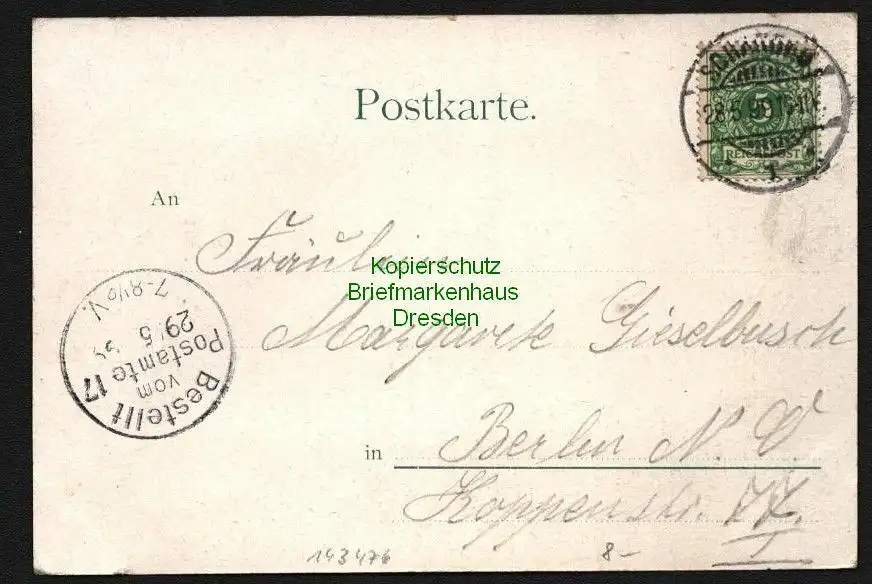 Postkarte.
SCHANDAU
28.5.99
5
REICHSPOST
An
Fräulein
Kopierschutz
Briefmarkenhaus
Dresden
Margarete Gieselbusch
7-8½V.
29/5 99
Bestellt
vom
Postamte 17
in
Berlin N. O.
Koppenstr. 77.
I
143476
8-